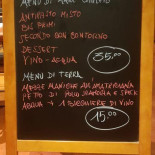 MENU DI MARE
ANTIPASTO MISTO
BIS PRIMI
SECONDO CON CONTORNO
DESSERT
VINO - ACQUA
35,00
MENU DI TERRA
MEZZE MANICHE ALL'AMATRICIANA
PETTO DI POLLO E SPECK
ACQUA 1 BICCHIERE DI VINO
15,00